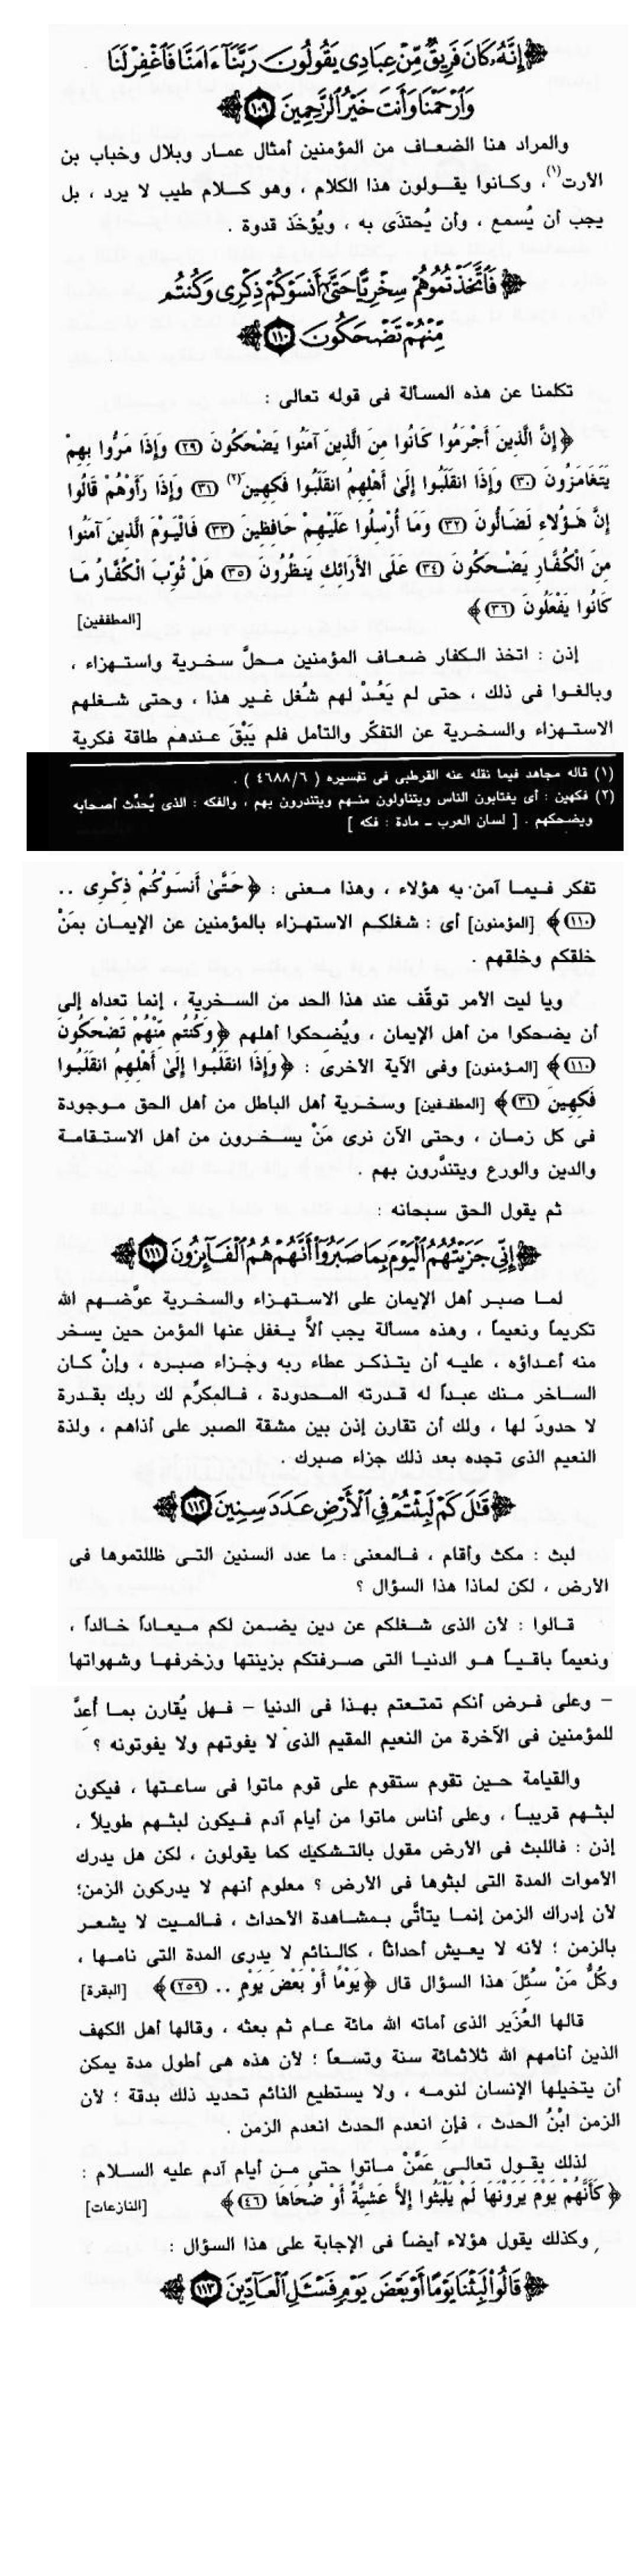 ﴿ إِنَّهُ كَانَ فَرِيقٌ مِّنْ عِبَادِى يَقُولُونَ رَبَّنَآ ءَامَنَّا فَٱغْفِرْ لَنَا
وَٱرْحَمْنَا وَأَنتَ خَيْرُ ٱلرَّٰحِمِينَ ﴿١٠٩﴾
والمراد هنا الضعاف من المؤمنين أمثال عمار وبلال وخباب بن
الأرت(١)، وكانوا يقولون هذا الكلام ، وهو كلام طيب لا يرد ، بل
يجب أن يُسمع ، وأن يُحتذَى به ، ويُؤخَذ قدوة .
﴿ فَٱتَّخَذْتُمُوهُمْ سِخْرِيًّا حَتَّىٰٓ أَنسَوْكُمْ ذِكْرِى وَكُنتُم
مِّنْهُمْ تَضْحَكُونَ ﴿١١٠﴾
تكلمنا عن هذه المسألة فى قوله تعالى :
﴿ إِنَّ الَّذِينَ أَجْرَمُوا كَانُوا مِنَ الَّذِينَ آمَنُوا يَضْحَكُونَ (٢٩) وَإِذَا مَرُّوا بِهِمْ
يَتَغَامَزُونَ (٣٠) وَإِذَا انقَلَبُوا إِلَىٰ أَهْلِهِمُ انقَلَبُوا فَكِهِينَ(٢) (٣١) وَإِذَا رَأَوْهُمْ قَالُوا
إِنَّ هَـٰؤُلَاءِ لَضَالُّونَ (٣٢) وَمَا أُرْسِلُوا عَلَيْهِمْ حَافِظِينَ (٣٣) فَالْيَوْمَ الَّذِينَ آمَنُوا
مِنَ الْكُفَّارِ يَضْحَكُونَ (٣٤) عَلَى الْأَرَائِكِ يَنظُرُونَ (٣٥) هَلْ ثُوِّبَ الْكُفَّارُ مَا
كَانُوا يَفْعَلُونَ (٣٦) ﴾ [المطففين]
إذن : اتخذ الكفار ضعاف المؤمنين محلَّ سخرية واستهزاء ،
وبالغوا فى ذلك ، حتى لم يَعُدْ لهم شُغل غير هذا ، وحتى شغلهم
الاستهزاء والسخرية عن التفكّر والتأمل فلم يَبْقَ عندهم طاقة فكرية
(١) قاله مجاهد فيما نقله عنه القرطبى فى تفسيره ( ٤٦٨٨/٦ ) .
(٢) فكهين : أى يغتابون الناس ويتناولون منهم ويتندرون بهم ، والفكه : الذى يُحدِّث أصحابه
ويضحكهم . [ لسان العرب – مادة : فكه ]
تفكر فيما آمن به هؤلاء ، وهذا معنى : ﴿ حَتَّىٰ أَنسَوْكُمْ ذِكْرِى ..
(١١٠) ﴾ [المؤمنون] أى : شغلكم الاستهزاء بالمؤمنين عن الإيمان بمَنْ
خلقكم وخلقهم .
ويا ليت الأمر توقَّف عند هذا الحد من السخرية ، إنما تعداه إلى
أن يضحكوا من أهل الإيمان ، ويُضحكوا أهلهم ﴿ وَكُنتُم مِّنْهُمْ تَضْحَكُونَ
(١١٠) ﴾ [المؤمنون] وفى الآية الأخرى : ﴿ وَإِذَا انقَلَبُوا إِلَىٰ أَهْلِهِمُ انقَلَبُوا
فَكِهِينَ (٣١) ﴾ [المطففين] وسخرية أهل الباطل من أهل الحق موجودة
فى كل زمان ، وحتى الآن نرى مَنْ يسخرون من أهل الاستقامة
والدين والورع ويتندَّرون بهم .
ثم يقول الحق سبحانه :
﴿ إِنِّى جَزَيْتُهُمُ ٱلْيَوْمَ بِمَا صَبَرُوٓا۟ أَنَّهُمْ هُمُ ٱلْفَآئِزُونَ ﴿١١١﴾
لما صبر أهل الإيمان على الاستهزاء والسخرية عوَّضهم الله
تكريماً ونعيماً ، وهذه مسألة يجب ألاَّ يغفل عنها المؤمن حين يسخر
منه أعداؤه ، عليه أن يتذكر عطاء ربه وجزاء صبره ، وإنْ كان
الساخر منك عبداً له قدرته المحدودة ، فالمكرِّم لك ربك بقدرة
لا حدودَ لها ، ولك أن تقارن إذن بين مشقة الصبر على أذاهم ، ولذة
النعيم الذى تجده بعد ذلك جزاء صبرك .
﴿ قَٰلَ كَمْ لَبِثْتُمْ فِى ٱلْأَرْضِ عَدَدَ سِنِينَ ﴿١١٢﴾
لبث : مكث وأقام ، فالمعنى : ما عدد السنين التى ظللتموها فى
الأرض ، لكن لماذا هذا السؤال ؟
قالوا : لأن الذى شغلكم عن دين يضمن لكم ميعاداً خالداً ،
ونعيماً باقياً هو الدنيا التى صرفتكم بزينتها وزخرفها وشهواتها
– وعلى فرض أنكم تمتعتم بهذا فى الدنيا – فهل يُقارن بما أُعِدَّ
للمؤمنين فى الآخرة من النعيم المقيم الذى لا يفوتهم ولا يفوتونه ؟
والقيامة حين تقوم ستقوم على قوم ماتوا فى ساعتها ، فيكون
لبثهم قريباً ، وعلى أناس ماتوا من أيام آدم فيكون لبثهم طويلاً ،
إذن : فاللبث فى الأرض مقول بالتشكيك كما يقولون ، لكن هل يدرك
الأموات المدة التى لبثوها فى الأرض ؟ معلوم أنهم لا يدركون الزمن؛
لأن إدراك الزمن إنما يتأتَّى بمشاهدة الأحداث ، فالميت لا يشعر
بالزمن ؛ لأنه لا يعيش أحداثاً ، كالنائم لا يدرى المدة التى نامها ،
وكُلُّ مَنْ سُئِلَ هذا السؤال قال ﴿ يَوْمًا أَوْ بَعْضَ يَوْمٍ .. (٢٥٩) ﴾ [البقرة]
قالها العُزَير الذى أماته الله مائة عام ثم بعثه ، وقالها أهل الكهف
الذين أنامهم الله ثلاثمائة سنة وتسعاً ؛ لأن هذه هى أطول مدة يمكن
أن يتخيلها الإنسان لنومه ، ولا يستطيع النائم تحديد ذلك بدقة ؛ لأن
الزمن ابْنُ الحدث ، فإن انعدم الحدث انعدم الزمن .
لذلك يقول تعالى عَمَّنْ ماتوا حتى من أيام آدم عليه السلام :
﴿ كَأَنَّهُمْ يَوْمَ يَرَوْنَهَا لَمْ يَلْبَثُوا إِلَّا عَشِيَّةً أَوْ ضُحَاهَا (٤٦) ﴾ [النازعات]
وكذلك يقول هؤلاء أيضاً فى الإجابة على هذا السؤال :
﴿ قَالُوا۟ لَبِثْنَا يَوْمًا أَوْ بَعْضَ يَوْمٍ فَسْـَٔلِ ٱلْعَآدِّينَ ﴿١١٣﴾